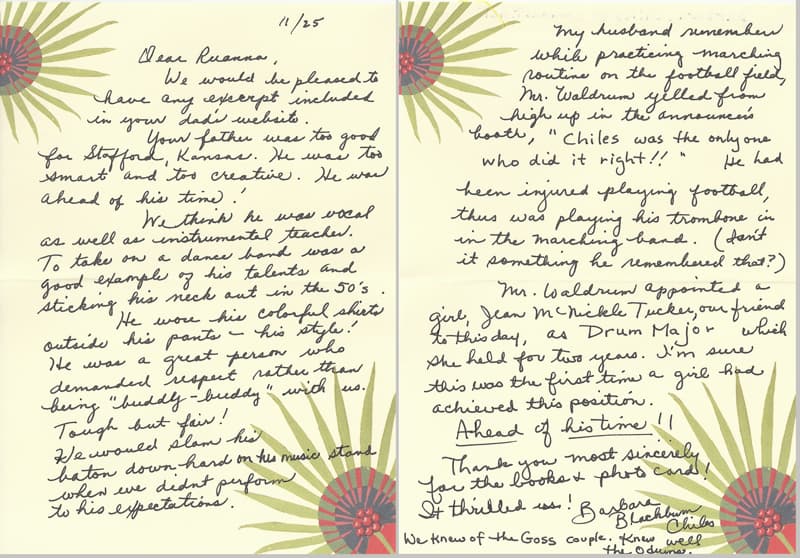 11/25
Dear Ruanna,
We would be pleased to
have any excerpt included
in your dad's website.
Your father was too good
for Stafford, Kansas. He was too
smart and too creative. He was
ahead of his time!
We think he was vocal
as well as instrumental teacher.
To take on a dance band was a
good example of his talents and
sticking his neck out in the 50's.
He wore his colorful shirts
outside his pants – his style!
He was a great person who
demanded respect rather than
being "buddly-buddy" with us.
Tough but fair!
He would slam his
baton down hard on his music stand
when we didnt perform
to his expectations.
My husband remembers
while practicing marching
routine on the football field,
Mr. Waldrum yelled from
high up in the announceis
booth, "Chiles was the only one
who did it right!!" He had
been injured playing football,
thus was playing his trombone in
in the marching band. (Isn't
it something he remembered that?)
Mr. Waldrum appointed a
girl, Jean McNickle Tucker, our friend
to this day, as Drum Major which
she held for two years. I'm sure
this was the first time a girl had
achieved this position.
Ahead of his time!!
Thank you most sincerely
for the books & photo card!
It thrilled us! Barbara
Blackburn
Chiles
We knew of the Goss couple. Knew well
the Odums.